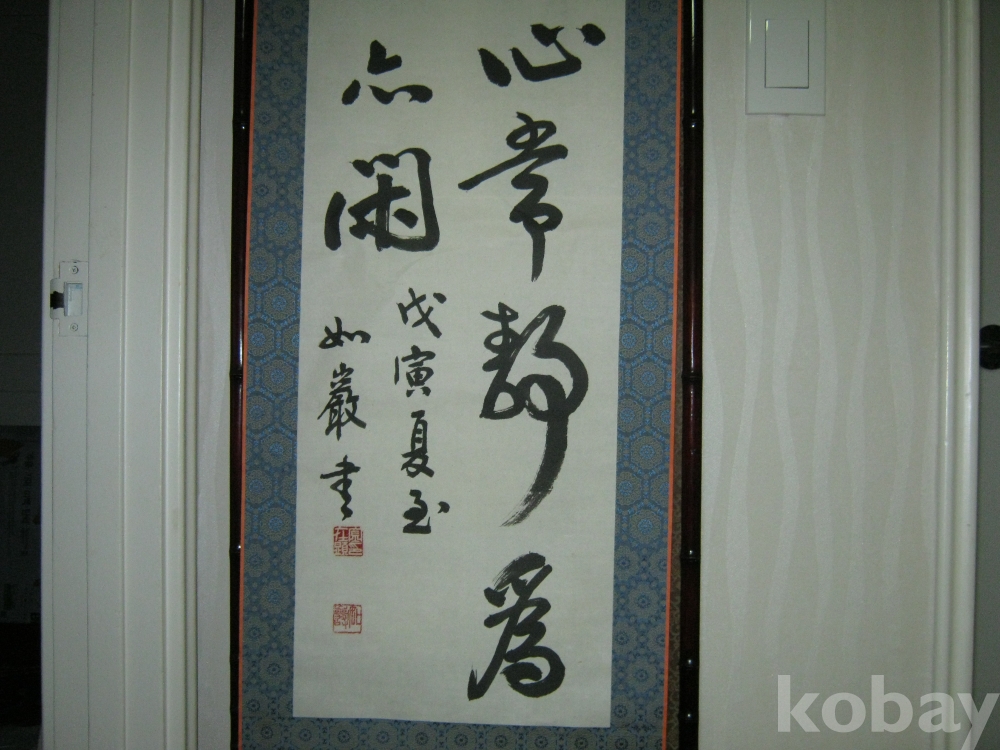 心常靜爲
亦閑
戊寅夏至
如巖書
kobay